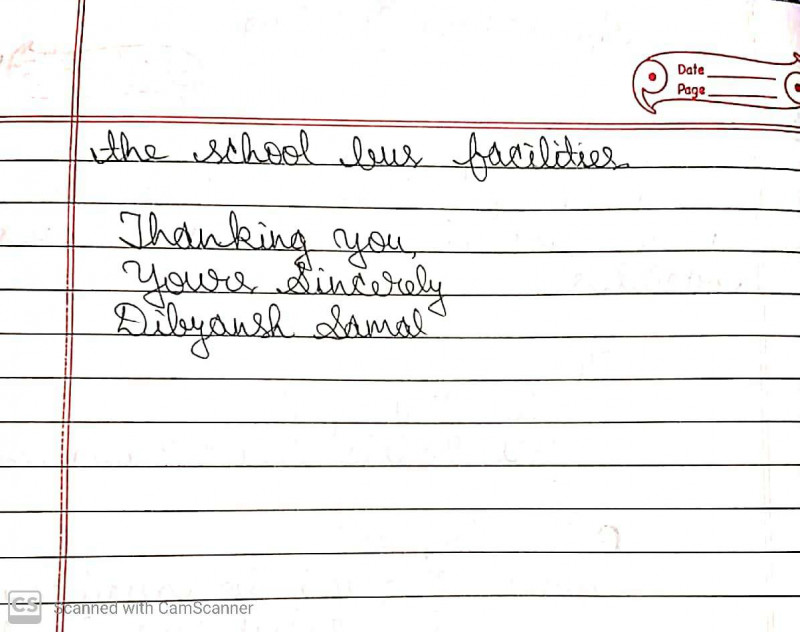 Date
Page
the school bus facilities
Thanking you,
Yours Sincerely
Dibyansh Samal
CS Scanned with CamScanner